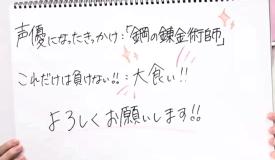 声優になったきっかけ:「鋼の錬金術師」
これだけは負けない!!:大食い!!
よろしくお願いします!!